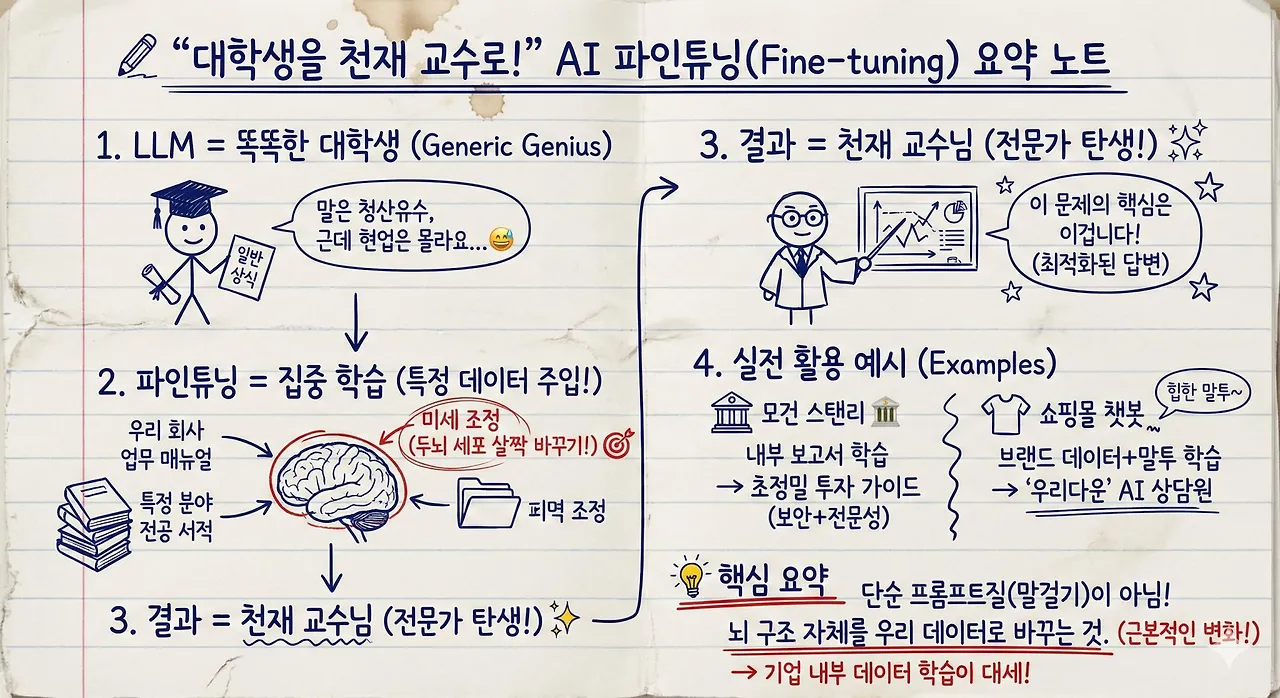 “대학생을 천재 교수로!” AI 파인튜닝(Fine-tuning) 요약 노트
1. LLM = 똑똑한 대학생 (Generic Genius)
말은 청산유수,
근데 현업은 몰라요...😅
일반
상식
2. 파인튜닝 = 집중 학습 (특정 데이터 주입!)
미세 조정
(두뇌 세포 살짝 바꾸기!)
우리 회사
업무 매뉴얼
특정 분야
전공 서적
조정
3. 결과 = 천재 교수님 (전문가 탄생!)
3. 결과 = 천재 교수님 (전문가 탄생!)
이 문제의 핵심은
이겁니다!
(최적화된 답변)
4. 실전 활용 예시 (Examples)
모건 스탠리
내부 보고서 학습
→ 초정밀 투자 가이드
(보안+전문성)
쇼핑몰 챗봇
힙한 말투~
브랜드 데이터+말투 학습
→ ‘우리다운’ AI 상담원
핵심 요약
단순 프롬프트질(말걸기)이 아님!
뇌 구조 자체를 우리 데이터로 바꾸는 것. (근본적인 변화!)
→ 기업 내부 데이터 학습이 대세!